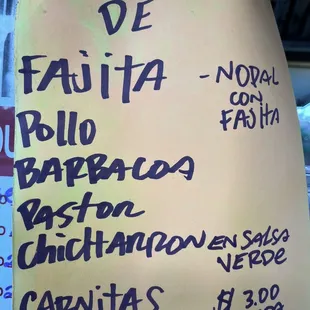 DE
FAJITA - NODAL
CON
FAJITA
POLLO
BARBACOA
PASTOR
CHICHARRON EN SALSA
VERDE
CARNITAS $ 3.00